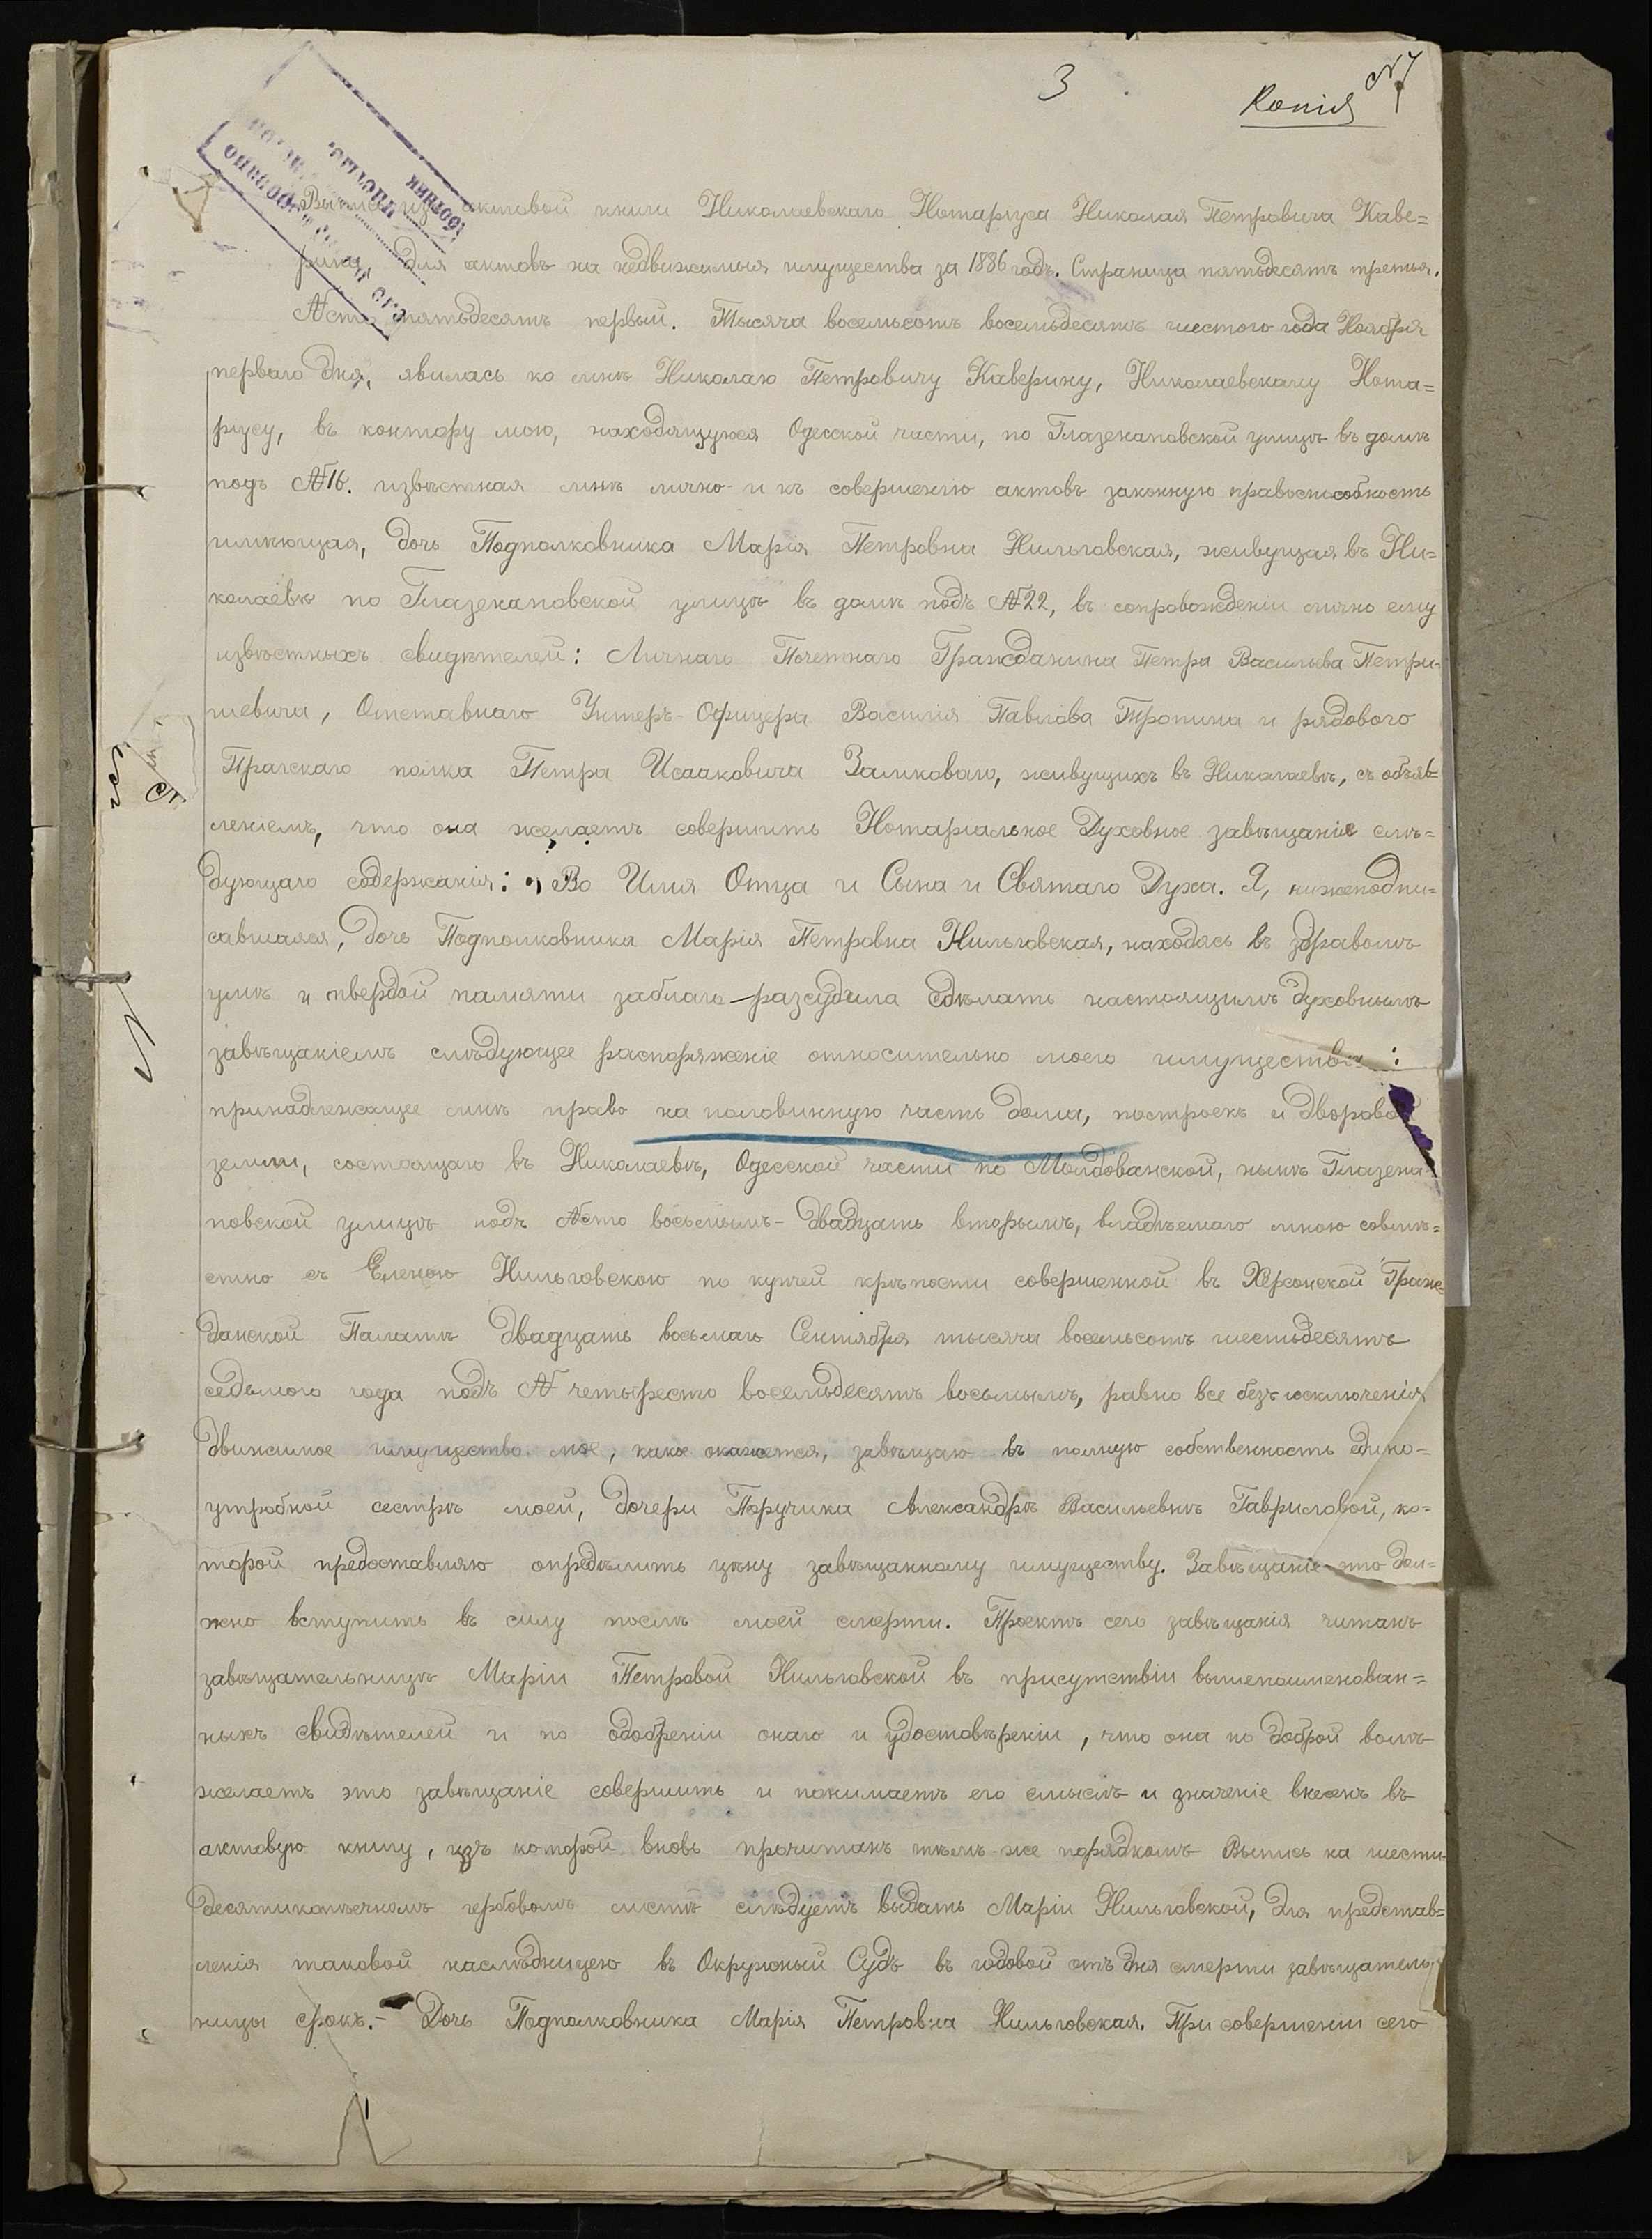 3
Копія
Выпись изъ актовой книги Николаевскаго Нотаріуса Николая Петровича Каве=
рина, для актовъ на недвижимыя имущества за 1886 годъ. Страница пятьдесятъ третья.
№ сто пятьдесятъ первый. Тысяча восемьсотъ восемьдесятъ шестого года Ноября
перваго дня, явилась ко мнѣ Николаю Петровичу Каверину, Николаевскому Нота=
ріусу, въ контору мою, находящуюся Одесской части, по Глазенаповской улицѣ въ домѣ
подъ №16. извѣстная мнѣ лично и къ совершенію актовъ законную правоспособность
имѣющая, дочь Подполковника Марія Петровна Нильговская, живущая въ Ни=
колаевѣ по Глазенаповской улицѣ въ домѣ подъ №22, въ сопровожденіи лично ему
извѣстныхъ свидѣтелей: Личнаго Почетнаго Гражданина Петра Васильева Петри-
шевича, Отставнаго Унтеръ-Офицера Василія Павлова Тропина и рядового
Пражскаго полка Петра Исааковича Заликоваго, живущихъ въ Николаевѣ, съ объяв=
леніемъ, что она желаетъ совершить Нотаріальное Духовное завѣщаніе слѣ=
дующаго содержанія: „Во Имя Отца и Сына и Святаго Духа. Я, нижеподпи=
савшаяся, дочь Подполковника Марія Петровна Нильговская, находясь въ здравомъ
умѣ и твердой памяти заблаго-разсудила сдѣлать настоящимъ духовнымъ
завѣщаніемъ слѣдующее распоряженіе относительно моего имущества:
принадлежащее мнѣ право на половинную часть дома, построекъ и дворовой
земли, состоящаго въ Николаевѣ, Одесской части по Молдованской, нынѣ Глазена-
повской улицѣ подъ №сто восьмымъ-двадцать вторымъ, владѣемаго мною совмѣ=
стно съ Еленою Нильговскою по купчей крѣпости совершенной въ Херсонской Граж
данской Палатѣ двадцать восьмаго Сентября тысяча восемьсотъ шестьдесятъ
седьмого года подъ № четыреста восемьдесятъ восьмымъ, равно все безъ исключенія
движимое имущество мое, какое окажется, завѣщаю въ полную собственность едино=
утробной сестрѣ моей, дочери Поручика Александрѣ Васильевнѣ Гавриловой, ко=
торой предоставляю опредѣлить цѣну завѣщанному имуществу. Завѣщаніе это дол=
жно вступить въ силу послѣ моей смерти. Проектъ сего завѣщанія читанъ
завѣщательницѣ Маріи Петровой Нильговской въ присутствіи вышепоименован=
ныхъ свидѣтелей и по одобреніи онаго и удостовѣреніи, что она по доброй волѣ
желаетъ это завѣщаніе совершить и понимаетъ его смыслъ и значеніе внесенъ въ
актовую книгу, изъ которой вновь прочитанъ тѣмъ-же порядкомъ Выпись на шести-
десятикопѣечномъ гербовомъ листѣ слѣдуетъ выдать Маріи Нильговской, для представ=
ленія таковой наслѣдницею въ Окружный Судъ въ годовой отъ дня смерти завѣщатель
ницы срокъ.- Дочь Подполковника Марія Петровна Нильговская. При совершеніи сего